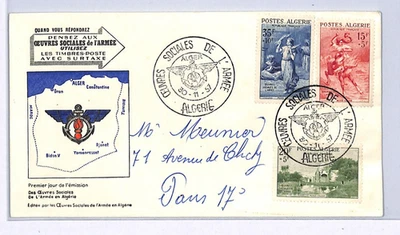 QUAND VOUS RÉPONDREZ
PENSEZ AUX
ŒUVRES SOCIALES de l'ARMÉE
UTILISEZ
LES TIMBRES-POSTE
AVEC SURTAXE
ALGER
Oran
Constantine
Bidon V
Tamanrasset
Djanet
Premier jour de l'émission
Des Œuvres Sociales
De L'Armée en Algérie
Édition par les Œuvres Sociales de l'Armée en Algérie
ŒUVRES SOCIALES DE L'ARMÉE
ALGER
30-11-57
ALGERIE
POSTES ALGERIE
35F
+10F
POSTES ALGERIE
15F
+5F
ŒUVRES SOCIALES DE L'ARMÉE
ALGER
ALGERIE
POSTES ALGERIE
M. Meunier
71 Avenue de Clichy
Paris 17e